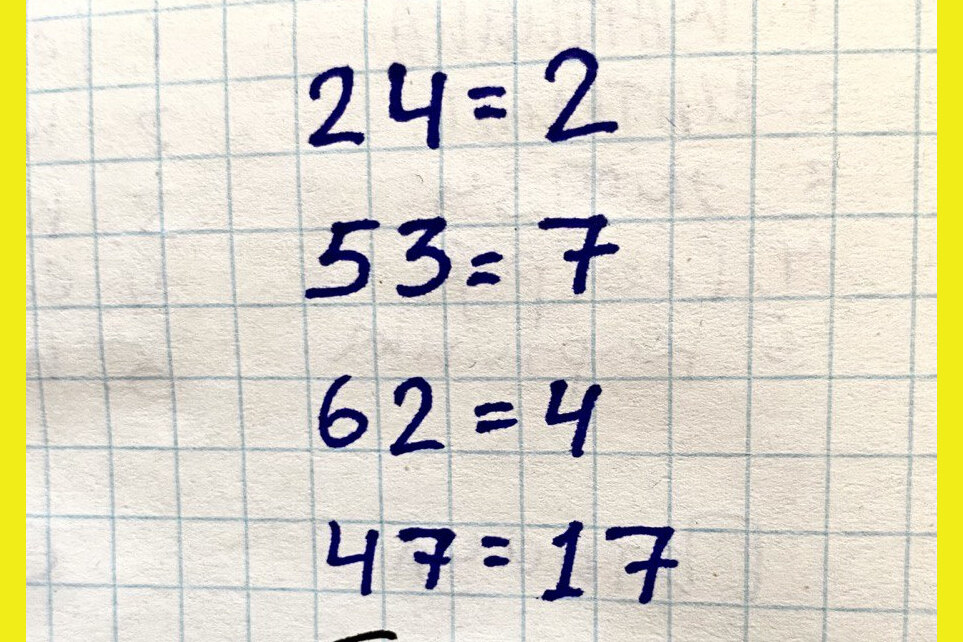 24=2
53=7
62=4
47=17